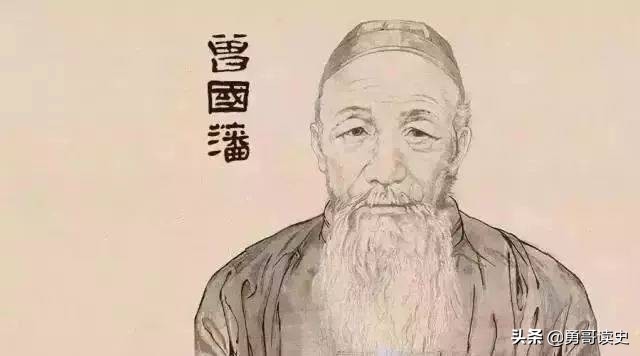 曾國藩
头条 @勇哥读史